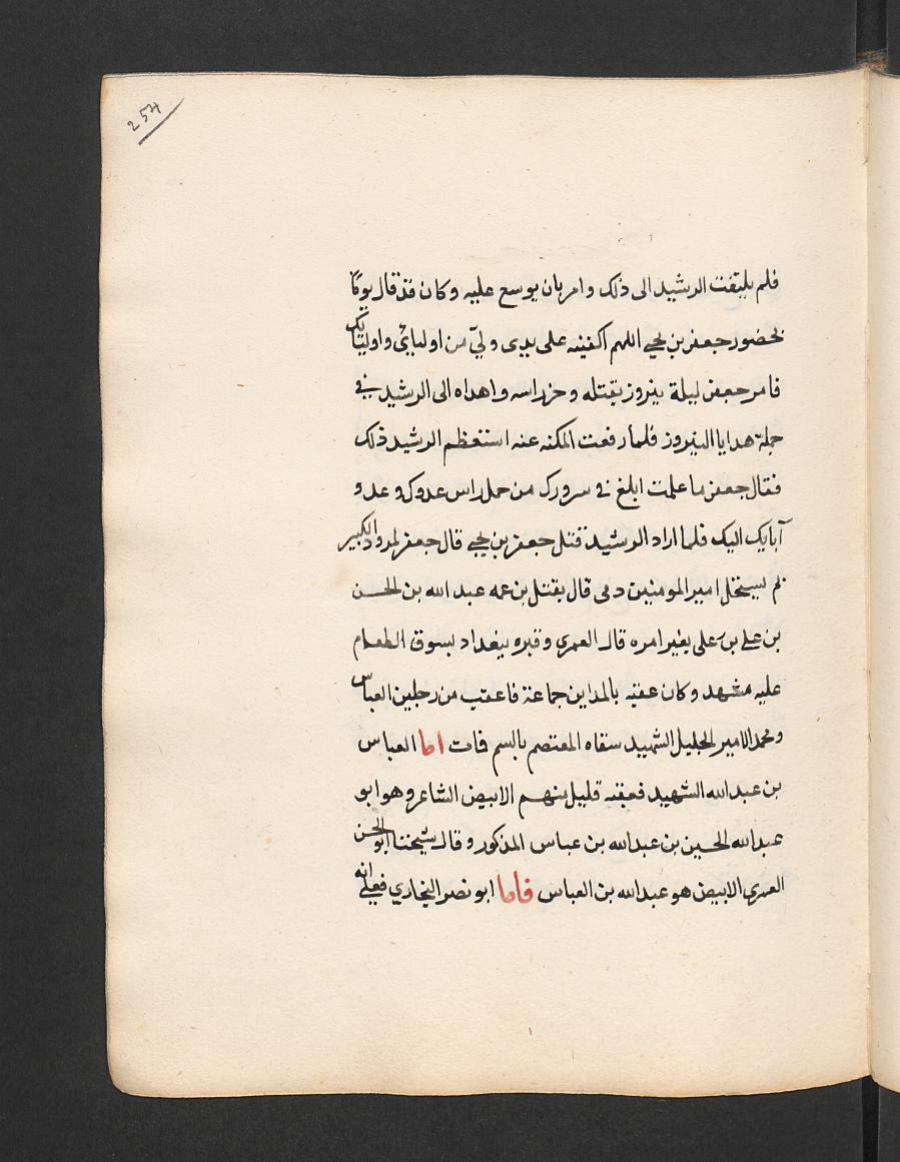 254
فلم يلتفت الرشيد الى ذلك وامر بان يوسع عليه وكان قد قال يوما
بحضور جعفر بن يحيى اللهم اكفنيه على يدى ولي من اوليائي واوليائك
فامر جعفر ليلة نيروز بقتله وحز راسه واهداه الى الرشيد في
جملة هدايا النيروز فلما رفعت المكنه عنه استعظم الرشيد ذلك
فقال جعفر ما علمت ابلغ في سرورك من حمل راس عدوك وعدو
آبايك اليك فلما اراد الرشيد قتل جعفر بن يحيى قال جعفر لمرور الكبير
بم يستحل امير المومنين دمى قال بقتل بن عمه عبد الله بن الحسن
بن علي بن على بغير امره قال العمري وقبره ببغداد بسوق الطعام
عليه مشهد وكان عقبه بالمداين جماعة فاعقب من رجلين العباس
ومحمد الامير الجليل الشهيد سقاه المعتصم بالسم فمات اما العباس
بن عبدالله الشهيد فعقبه قليل منهم الابيض الشاعر وهو ابو
عبدالله الحسين بن عبدالله بن عباس المذكور وقال شيخنا ابو الحسن
العمري الابيض هو عبدالله بن العباس فاما ابو نصر البخاري فعلى انه